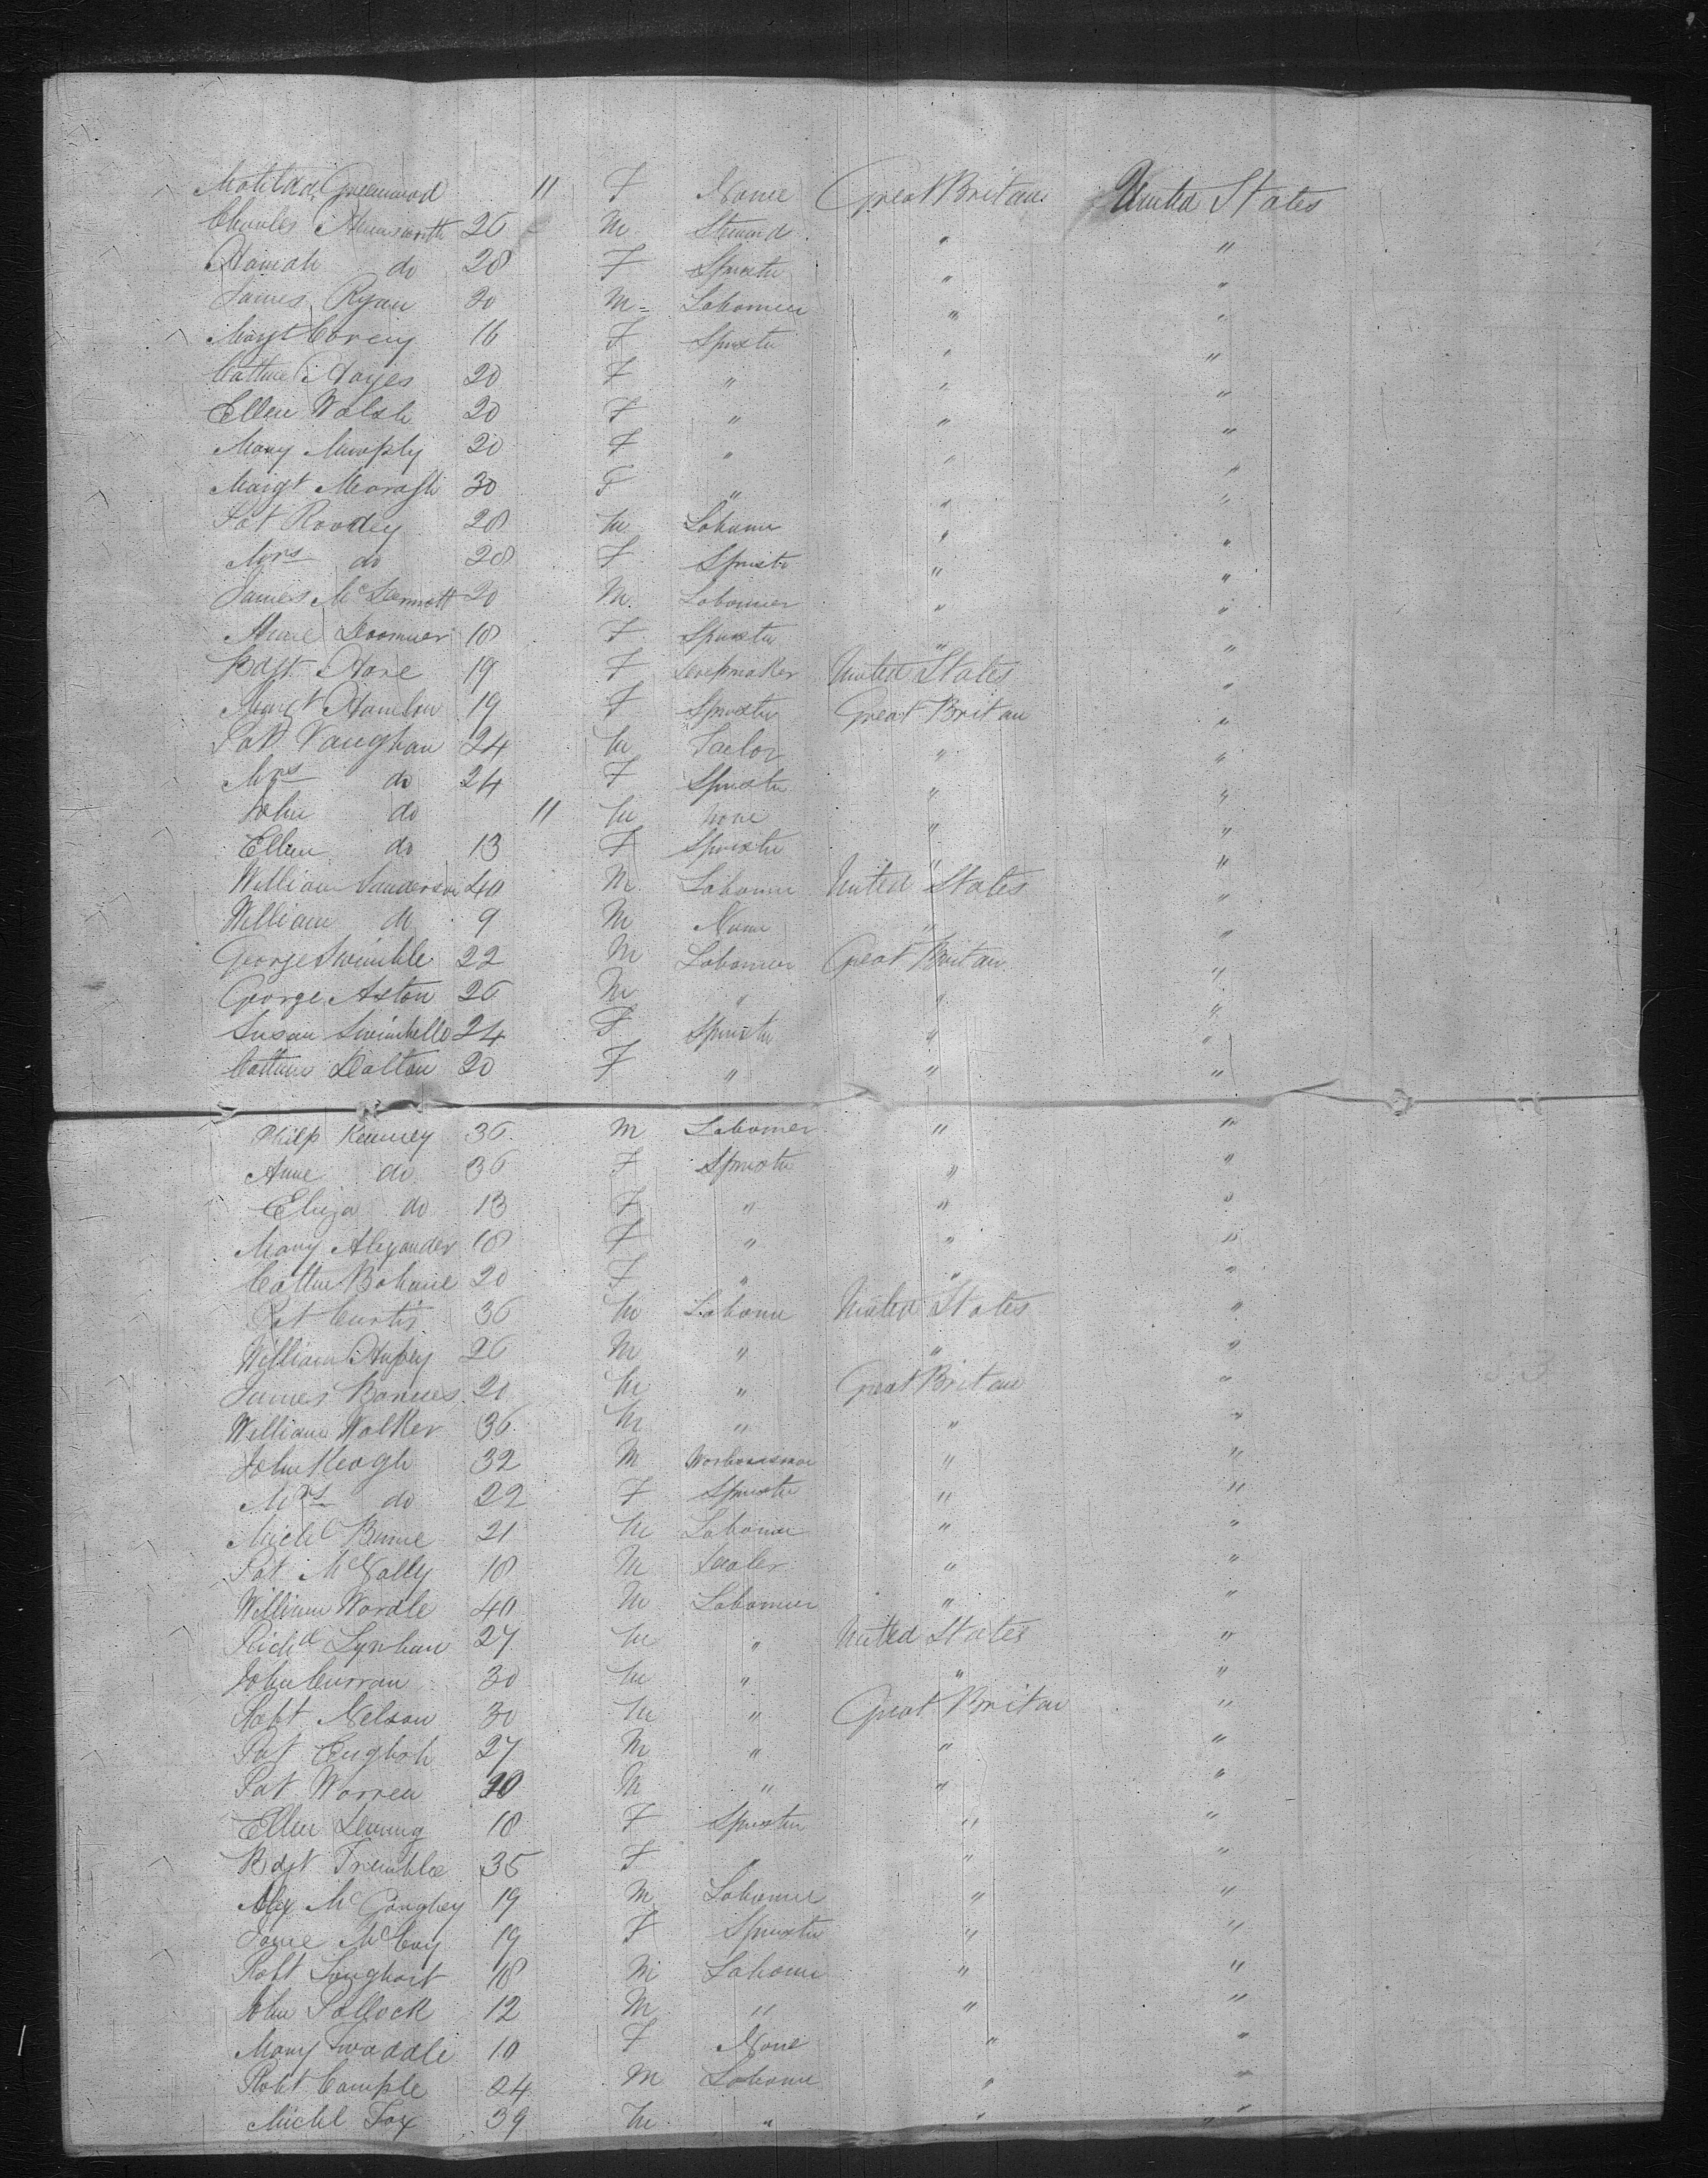 Matilda Greenwood 11 F None Great Britain United States
Charles Ainsworth 26 M Steward " "
Hannah do 28 F Spinster " "
James Ryan 20 M Labourer " "
Margt Corcig 16 F Spinster " "
Cathrine Hayes 20 F " " "
Ellen Walsh 20 F " " "
Mary Murphy 20 F " " "
Margt 30 F " " "
Pat Roodey 28 M Labourer " "
Mrs do 28 F Spinster " "
James McDermott 20 M Labourer " "
Anne 18 F Spinster " "
Bdgt Hare 19 F Dressmaker United States "
Margt Hanlon 19 F Spinster Great Britain "
Pat Vaughan 24 M Tailor " "
Mrs do 24 F Spinster " "
John do 11 M None " "
Ellen do 13 F Spinster " "
William Sanderson 40 M Labourer United States "
William do 9 M None " "
George Swindle 22 M Labourer Great Britain "
George Aston 26 M " " "
Susan Swindells 24 F Spinster " "
Cathrine Dalton 20 F " " "
Philip Kenney 36 M Labourer " "
Anne do 36 F Spinster " "
Eliza do 13 F " " "
Mary Alexander 18 F " " "
Cathrine 20 F " " "
Pat Curtis 36 M Labourer United States "
William 26 M " " "
James Barnes 21 M " Great Britain "
William Walker 36 M " " "
John Keogh 32 M " "
Mrs do 22 F Spinster " "
Michl Burne 21 M Labourer " "
Pat McNally 18 M " "
William Wardle 40 M Labourer " "
Richd Lynhan 27 M " United States "
John Curran 30 M " " "
Robt Nelson 30 M " Great Britain "
Pat English 27 M " " "
Pat Warren 30 M " " "
Ellen 18 F Spinster " "
Bdgt Tremblee 35 F " " "
Alex McGonghey 19 M Labourer " "
Jane McCoy 19 F Spinster " "
Robt 18 M Labourer " "
John Pollock 12 M " " "
Mary Twaddle 10 F None " "
Robt Cample 24 M Labourer " "
Michl Fox 39 M " " "